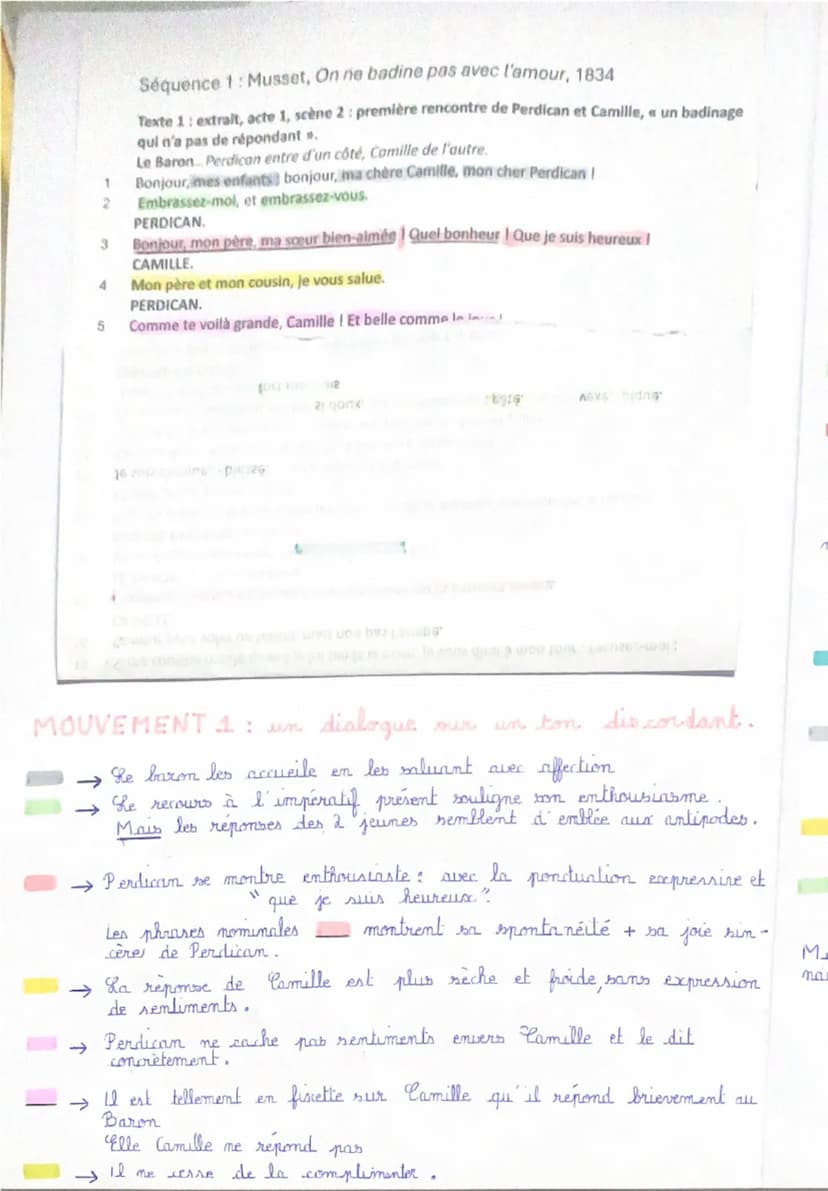 Séquence 1 : Musset, On ne badine pas avec l'amour, 1834
Texte 1 : extrait, acte 1, scène 2 : première rencontre de Perdican et Camille, « un badinage
qui n'a pas de répondant ».
Le Baron... Perdican entre d'un côté, Camille de l'autre.
1 Bonjour, mes enfants ! bonjour, ma chère Camille, mon cher Perdican !
2 Embrassez-moi, et embrassez-vous.
PERDICAN.
3 Bonjour, mon père, ma sœur bien-aimée ! Quel bonheur ! Que je suis heureux !
CAMILLE.
4 Mon père et mon cousin, je vous salue.
PERDICAN.
5 Comme te voilà grande, Camille ! Et belle comme le
MOUVEMENT 1 : un dialogue sur un ton discordant.
→ Le baron les accueile en les saluant avec affection
→ Le recours à l'impératif présent souligne son enthousiasme.
Mais les réponses des 2 jeunes semblent d'emblée aux antipodes.
→ Perdican se montre enthousiaste : avec la ponctuation expressive et
"que je suis heureux".
Les phrases nominales montrent sa spontanéité + sa joie sin-
cères de Perdican.
→ La réponse de Camille est plus sèche et froide, sans expression
de sentiments.
→ Perdican ne cache pas sentiments envers Camille et le dit
concrètement.
→ Il est tellement en fixette sur Camille qu'il répond brievement au
Baron
Elle Camille ne répond pas
→ Il ne cesse de la complimenter.